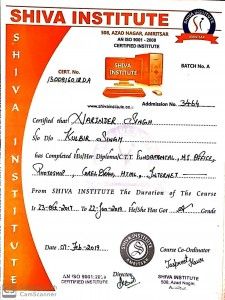 SHIVA INSTITUTE
508, AZAD NAGAR, AMRITSAR
AN ISO 9001 - 2008
CERTIFIED INSTITUTE
SHIVA INSTITUTE
SHIVA INSTITUTE
CERT. NO.
BATCH No. A
www.shivainstitute.in
Addmission No. 3464
Certified that Narinder Singh
S/o D/o Kulbir Singh
has Completed His/Her Diploma/C.T.T. Fundamental, M.S. Office,
Photoshop, Corel Draw, HTML, Internet
From SHIVA INSTITUTE The Duration of The Course
23-Dec-2017 To 22-Jan-2019 He/She Has Got Grade
Date 01-Feb-2019
Course Co-Ordinator
Director
AN ISO 9001:2008
CERTIFIED INSTITUTE
SHIVA INSTITUTE
508, Azad Nagar,
CamScanner